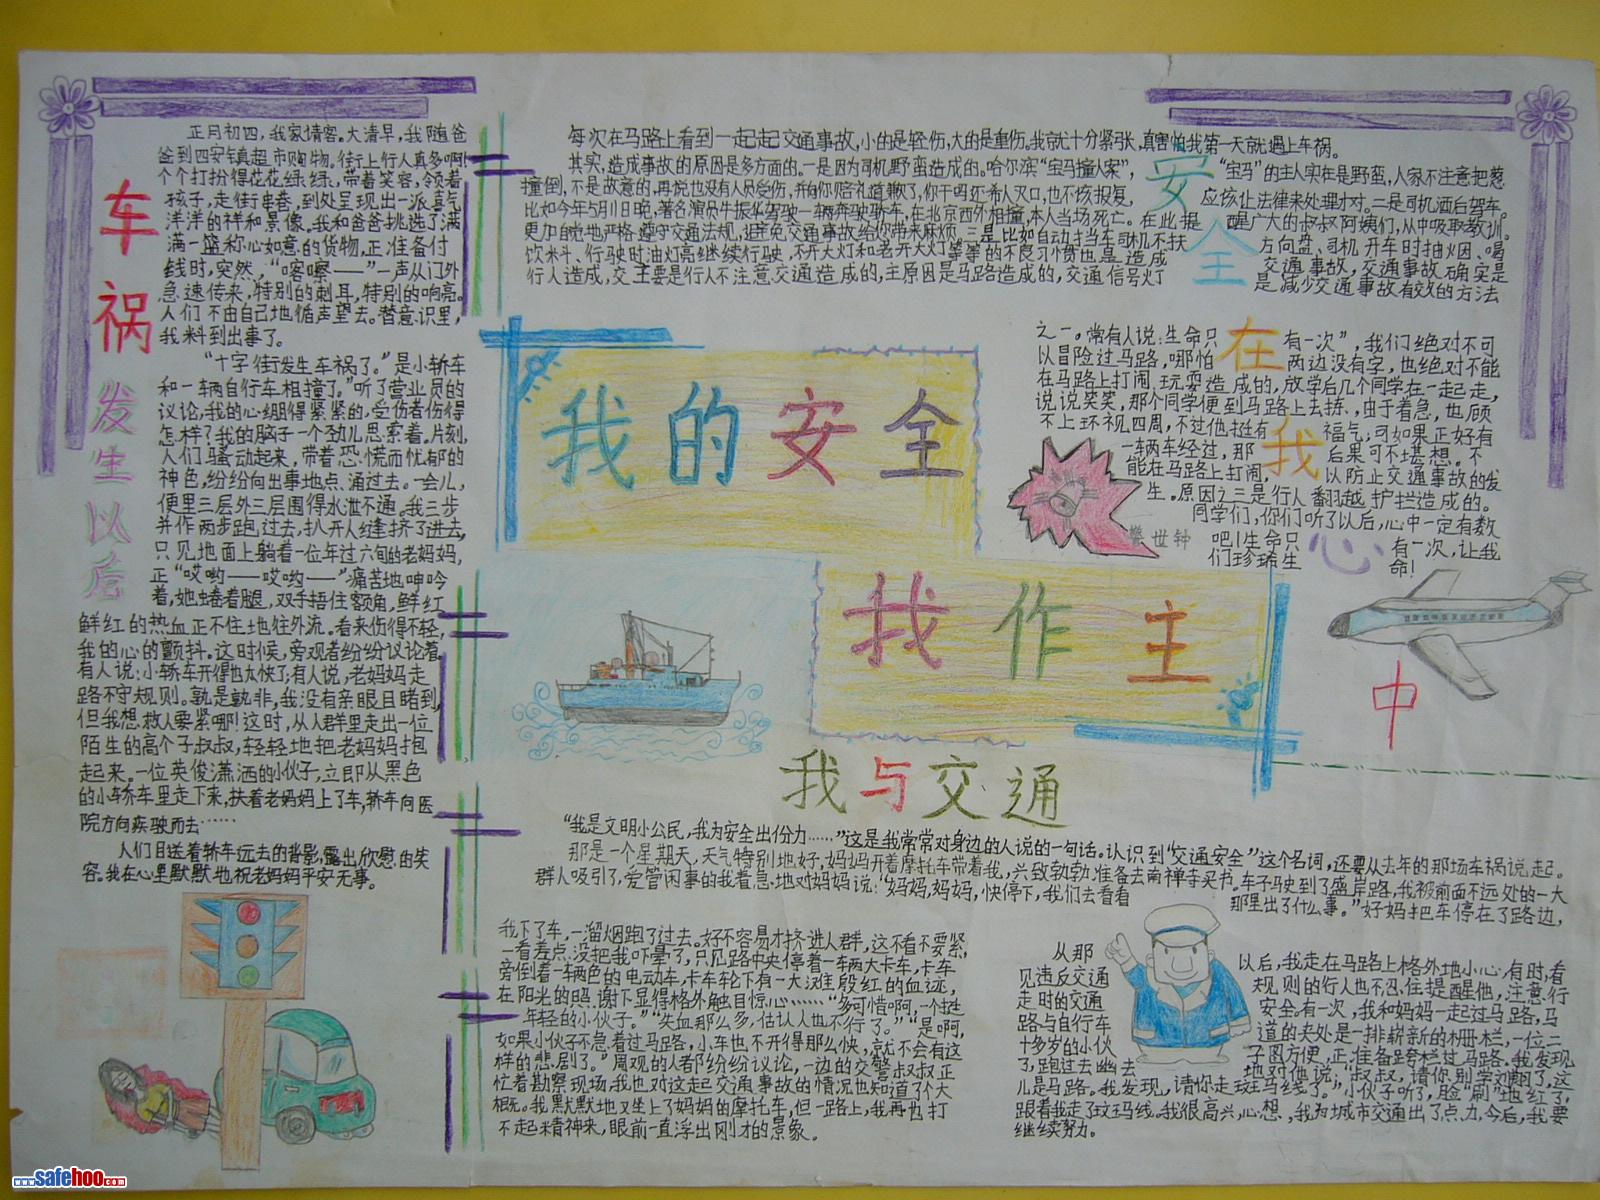 车祸发生以后
正月初四，我家请客。大清早，我随爸
爸到四安镇超市购物。街上行人真多啊！
个个打扮得花花绿绿，带着笑容，领着
孩子，走街串巷，到处呈现出一派喜气
洋洋的祥和景像。我和爸爸挑选了满
满一篮称心如意的货物，正准备付
钱时，突然，“喀嚓——”一声从门外
急速传来，特别的刺耳，特别的响亮。
人们不由自己地循声望去。替意识里，
我料到出事了。
“十字街发生车祸了。”是小轿车
和一辆自行车相撞了。”听了营业员的
议论，我的心绷得紧紧的，受伤者伤得
怎样？我的脑子一个劲儿思索着。片刻，
人们骚动起来，带着恐慌而忧郁的
神色，纷纷向出事地点涌过去。一会儿，
便里三层外三层围得水泄不通。我三步
并作两步跑过去，扒开人缝挤了进去，
只见地面上躺着一位年过六旬的老妈妈，
正“哎哟——哎哟——”痛苦地呻吟
着，她蜷着腿，双手捂住额角，鲜红
鲜红的热血正不住地往外流。看来伤得不轻，
我的心的颤抖。这时候，旁观者纷纷议论着，
有人说：小轿车开得也太快了；有人说，老妈妈走
路不守规则。孰是孰非，我没有亲眼目睹到，
但我想救人要紧哪！这时，从人群里走出一位
陌生的高个子叔叔，轻轻地把老妈妈抱
起来。一位英俊潇洒的小伙子，立即从黑色
的小轿车里走下来，扶着老妈妈上了车，轿车向医
院方向疾驶而去……
人们目送着轿车远去的背影，露出欣慰的笑
容。我在心里默默地祝老妈妈平安无事。
安全在我心中
每次在马路上看到一起起交通事故，小的是轻伤，大的是重伤。我就十分紧张，真害怕我第一天就遇上车祸。
其实，造成事故的原因是多方面的。一是因为司机野蛮造成的。哈尔滨“宝马撞人案”，“宝马”的主人实在是野蛮，人家不注意把葱
撞倒，不是故意的，再说也没有人员受伤，并向你赔礼道歉了，你干吗还希人又口，也不该报复，应该让法律来处理才对。二是司机洒后驾车。
比如今年5月1日晚，著名演员牛振华驾驶一辆奔驶轿车，在北京西外相撞，本人当场死亡。在此提醒广大的叔叔阿姨们，从中吸取教训。
更加自觉地严格遵守交通法规，避免交通事故给你带来麻烦。三是比如自动挡当车司机不扶方向盘、司机开车时抽烟、喝
饮料、行驶时油灯亮继续行驶，不开大灯和老开大灯等等的不良习惯也是造成交通事故，交通事故确实是
行人造成，交主要是行人不注意交通造成的，主原因是马路造成的，交通信号灯是减少交通事故有效的方法
之一。常有人说：生命只有一次”，我们绝对不可
以冒险过马路，哪怕两边没有字，也绝对不能
在马路上打闹、玩耍造成的，放学后几个同学在一起走，
说说笑笑，那个同学便到马路上去拣，由于着急，也顾
不上环视四周，不过他挺有福气；可如果正好有
一辆车经过，那后果可不堪想。不
能在马路上打闹，以防止交通事故的发
生。原因之三是行人翻越护拦造成的。
同学们，你们听了以后，心中一定有数
吧！生命只有一次，让我
们珍瑞生命！
警世钟
我的安全
我作主
我与交通
“我是文明小公民，我为安全出份力……”这是我常常对身边的人说的一句话。认识到“交通安全”这个名词，还要从去年的那场车祸说起。
那是一个星期天，天气特别地好，妈妈开着摩托车带着我，兴致勃勃准备去南禅寺买书。车子驶到了盛岸路，我被前面不远处的一大
群人吸引了，爱管闲事的我着急地对妈妈说：“妈妈，妈妈，快停下，我们去看看那里出了什么事。”好妈把车停在了路边，
我下了车，一溜烟跑了过去。好不容易才挤进人群，这不看不要紧，
一看差点没把我吓晕了，只见路中央停着一辆大卡车，卡车
旁倒着一辆色的电动车，卡车轮下有一大滩殷红的血迹，
在阳光的照谢下显得格外触目惊心……“多可惜啊，一个挺
年轻的小伙子。”“失血那么多，估认人也不行了。”“是啊，
如果小伙子不急着过马路，小车也不开得那么快，就不会有这
样的悲剧了。”周观的人都纷纷议论，一边的交警叔叔正
忙着勘察现场，我也对这起交通事故的情况也知道了个大
概。我默默地又坐上了妈妈的摩托车，但一路上，我再也打
不起精神来，眼前一直浮出刚才的景象。
从那以后，我走在马路上格外地小心，有时，看
见违反交通规则的行人也不忍住提醒他，注意行
走时的交通安全。有一次，我和妈妈一起过马路，马
路与自行车道的夹处是一排崭新的栅栏，一位二
十多岁的小伙子图方便，正准备跨栏过马路。我发现
了，跑过去幽去地对他说：“叔叔，请你别学刘翔了，这
儿是马路。我发现，请你走斑马线了。”小伙子听了，脸“刷”地红了，
跟着我走了坟玛线。我很高兴，心想，我为城市交通出了点力，今后，我要
继续努力。
www.safehoo.com